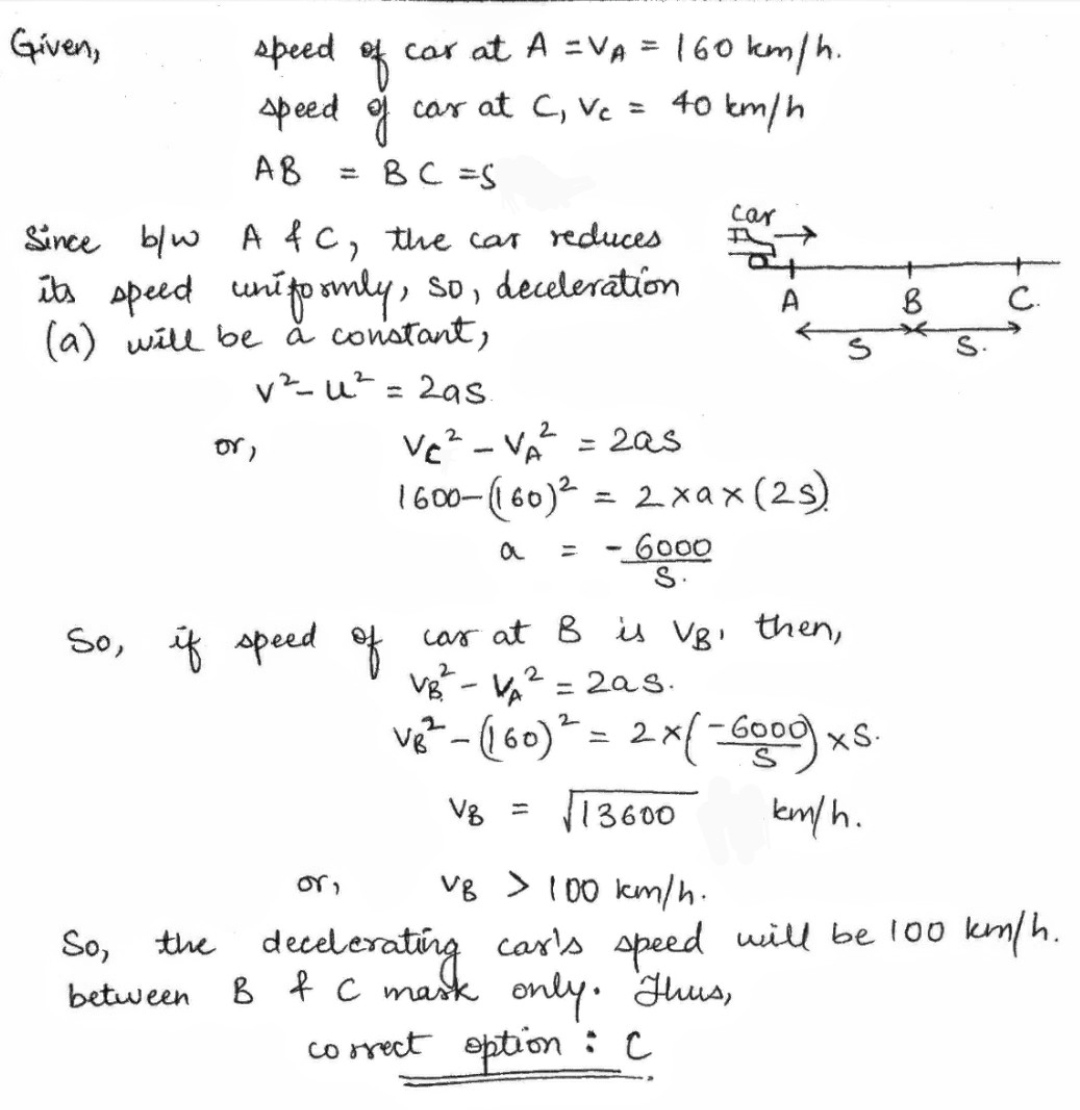 Given, speed of car at A = VA = 160 km/h.
speed of car at C, Vc = 40 km/h
AB = BC = S
Since b/w A & C, the car reduces
its speed uniformly, so, deceleration
(a) will be a constant,
car
A B C.
S S.
v² - u² = 2as.
or, Vc² - VA² = 2as
1600-(160)² = 2 x a x (2s).
a = - 6000/S.
So, if speed of car at B is VB, then,
VB² - VA² = 2as.
VB² - (160)² = 2 x (-6000/S) x S.
VB = √13600 km/h.
or, VB > 100 km/h.
So, the decelerating car's speed will be 100 km/h.
between B & C mask only. Thus,
correct option : C